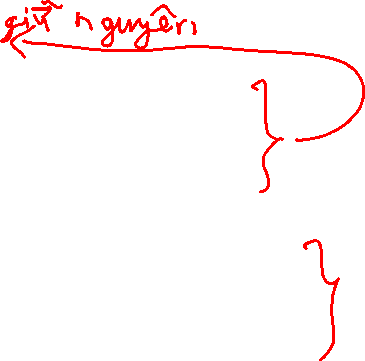 giữ nguyên